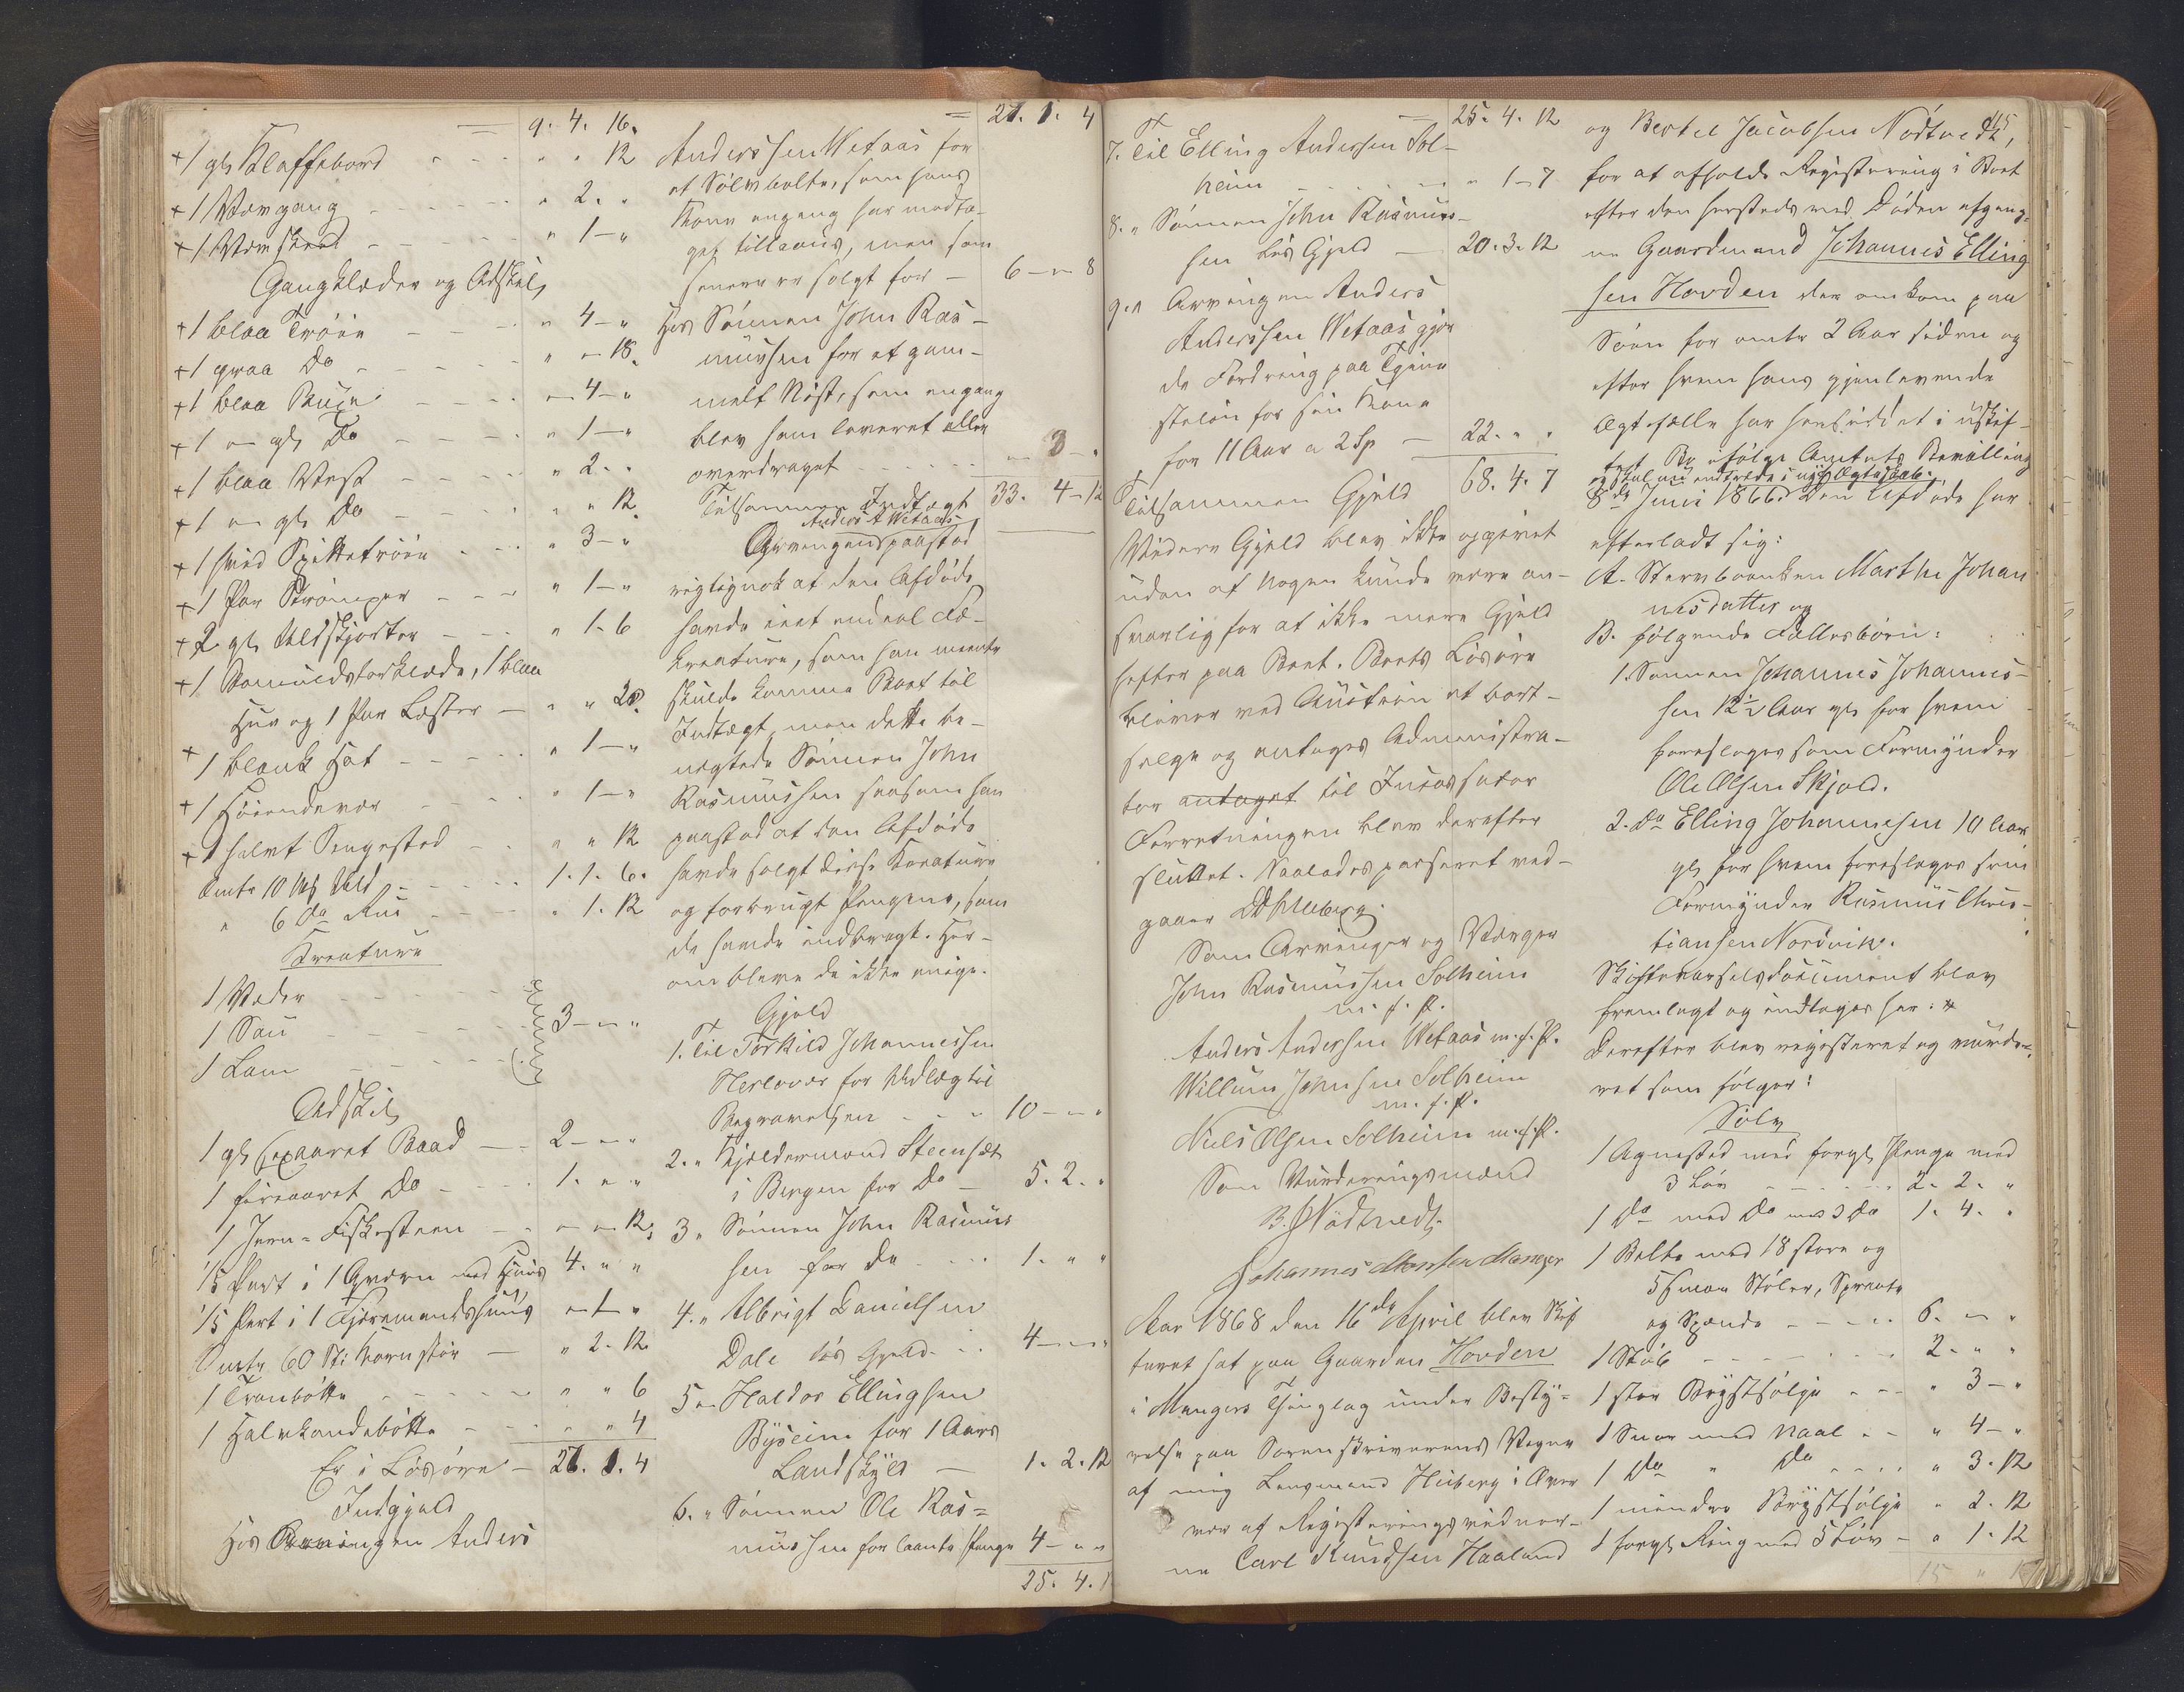 = 9. 4. 16.
+1 gl. Klaffebord - - - " " 12
+1 Vævgang - - - " 2. "
+1 Vævskeed - - - " 1 - "
Gangklæder og Adskil.
+1 blaa Trøie - - - " 4 - "
+1 graa Do - - - " - 18.
+1 blaa Buxe - - - " 4 - "
+1 gl. Do - - - " 1 - "
+1 blaa Vest - - - " 2. "
+1 gl. Do - - - " " 12
+1 hvid Spittetrøie - - " 3 - "
+1 Par Strømper - - - " 1 - "
+2 gl. Uldskjorter - - - " 1. 6
+1 Bomuldstørklæde, 1 blaa
Hue og 1 Par Læster - " " 20.
+1 blank Hat - - - " 1 - "
+1 Høiendevar - - - " 1 - "
+1 halvt Sengested - - " " 12
Omtr 10 Uld - - - 1. 1. 6.
" 6 do - - - " 1. 12
Kreature
1 Væder - - -
1 Sau - - - 3 - - "
1 Lam - - -
Adskil.
1 gl. sexaaret Baad - 2 - - "
1 fireaaret Do - - - 1. " "
1 Jern-Fiskesteen - - " - 12.
1/5 Part i 1 Qværn med Huus 4. " "
1/5 Part i 1 Fjøremandshuus - 1 - "
Omtr 60 St: Kornstør - " 2. 12
1 Tranbøtte - - - " " 6
1 Halvkandebøtte - - " " 4
Er i Løsøre - 21. 1. 4
Indgjæld
Hos Arvingen Anders
= 21. 1. 4
Anderssen Wetaas for
et Sølvbelte, som hans
Kone engang har modta-
get tillaans, men som
senere er solgt for - 6 - - 8
Hos Sønnen John Ras-
mussen for et gam-
melt Nøst, som engang
blev ham leveret eller
overdraget - - - - 3 - .
Tilsammen Indtægt 33. 4 - 12
Anders A Wetaas
Arvingens paastod
rigtignok at den Afdøde
havde eiet endeel Fæ-
kreature, som han meente
skulde komme Boet til
Indtægt, men dette be-
nægtede Sønnen John
Rasmussen saasom han
paastod at den Afdøde
havde solgt disse Kreature
og forbrugt Pengene, som
de havde indbragt. Her-
om bleve de ikke enige.
Gjæld
1. Til Torkild Johannessen
Herlevær for Udlæg til
Begravelsen - - - 10 - - "
2. " Kjeldermand Steensæt
i Bergen for Do - 5. 2. "
3 " Sønnen John Rasmus
sen for Do - - - 1. " "
4. " Albrigt Danielsen
Dale løs Gjæld - - 4 - - "
5 " Haldor Ellingsen
Byseim for 1 Aars
Landskyld - 1. 2. 12
6. " Sønnen Ole Ras=
mussen for laante Penge 4 - " "
25. 4. 1
= 25. 4. 12
7. Til Elling Andersen Sol-
heim - - - " 1 - 7
8. " Sønnen John Rasmus-
sen løs Gjæld - 20. 3. 12
9. " Arvingen Anders
Anderssen Wetaas gjor
de Fordring paa Tjene
steløn for sin Kone
for 11 Aar a 2 Sp - 22. " "
Tilsammen Gjæld 68. 4. 7
Videre Gjæld blev ikke opgivet
uden at Nogen kunde være an-
svarlig for at ikke mere Gjæld
hefter paa Boet. Boets Løsøre
bliver ved Auction at bort-
sælge og antages Administra-
tor antaget til Incassator
Forretningen blev derefter
sluttet. Naalades passeret ved-
gaaer DHeiberg
Som Arvinger og Værger
John Rasmussen Solheim
m. f. P.
Anders Andersen Wetaas m. f. P.
Willum Johnsen Solheim
m. f. P.
Niels Olsen Solheim m. f. P.
Som Vurderingsmænd
B. JNødtvedt.
Johannes Monsen Manger
Aar 1868 den 16de April blev Skif
teret sat paa Gaarden Hovden
i Mangers Thinglag under Besty-
relse paa Sorenskriverens Vegne
af mig Lensmand Heiberg i Over
vær af Registeringsvidner-
ne Carl Knudsen Haaland
115
og Bertel Jacobsen Nødtvedt,
for at afholde Registrering i Boet
efter den hersteds ved Døden afgang-
ne Gaardmand Johannes Elling
sen Hovden der omkom paa
Søen for omtr 2 Aar siden og
efter hvem hans gjenlevende
Ægtefælle har hensiddet i uskif-
tet Bo ifølge Amtets Bevilling
og skal nu indtræde i nyt Ægteskab.
8de Juni 1866. Den Afdøde har
efterladt sig:
A. Stervboenken Marthe Johan
nesdatter og
B. følgende Fællesbørn:
1. Sønnen Johannes Johannes-
sen 12½ Aar gl. for hvem
foreslages som Formynder
Ole Olsen Skjold.
2. Do Elling Johannesen 10 Aar
gl. for hvem foreslages som
Formynder Rasmus Chris-
tiansen Nordvik.
Skiftevarselsdocument blev
fremlagt og indtages her: *
Derefter blev registreret og vurde-
ret som følger:
Sølv
1 Agnested med forgl. Penge med
3 Løv - - - 2. 2. "
1 Do med Do med 3 Do 1. 4. "
1 Belte med 18 store og
5 smaa Støler, Sprente
og Spænde - - - 6. - "
1 Støb - - - 2. " "
1 stor Brystsølje - - " 3 - "
1 Snor med Naal - - " 4 - "
1 Do " Do - - " 3. 12
1 mindre Brystsølje " 2. 12
1 forgl. Ring med 5 Løv - " 1. 12